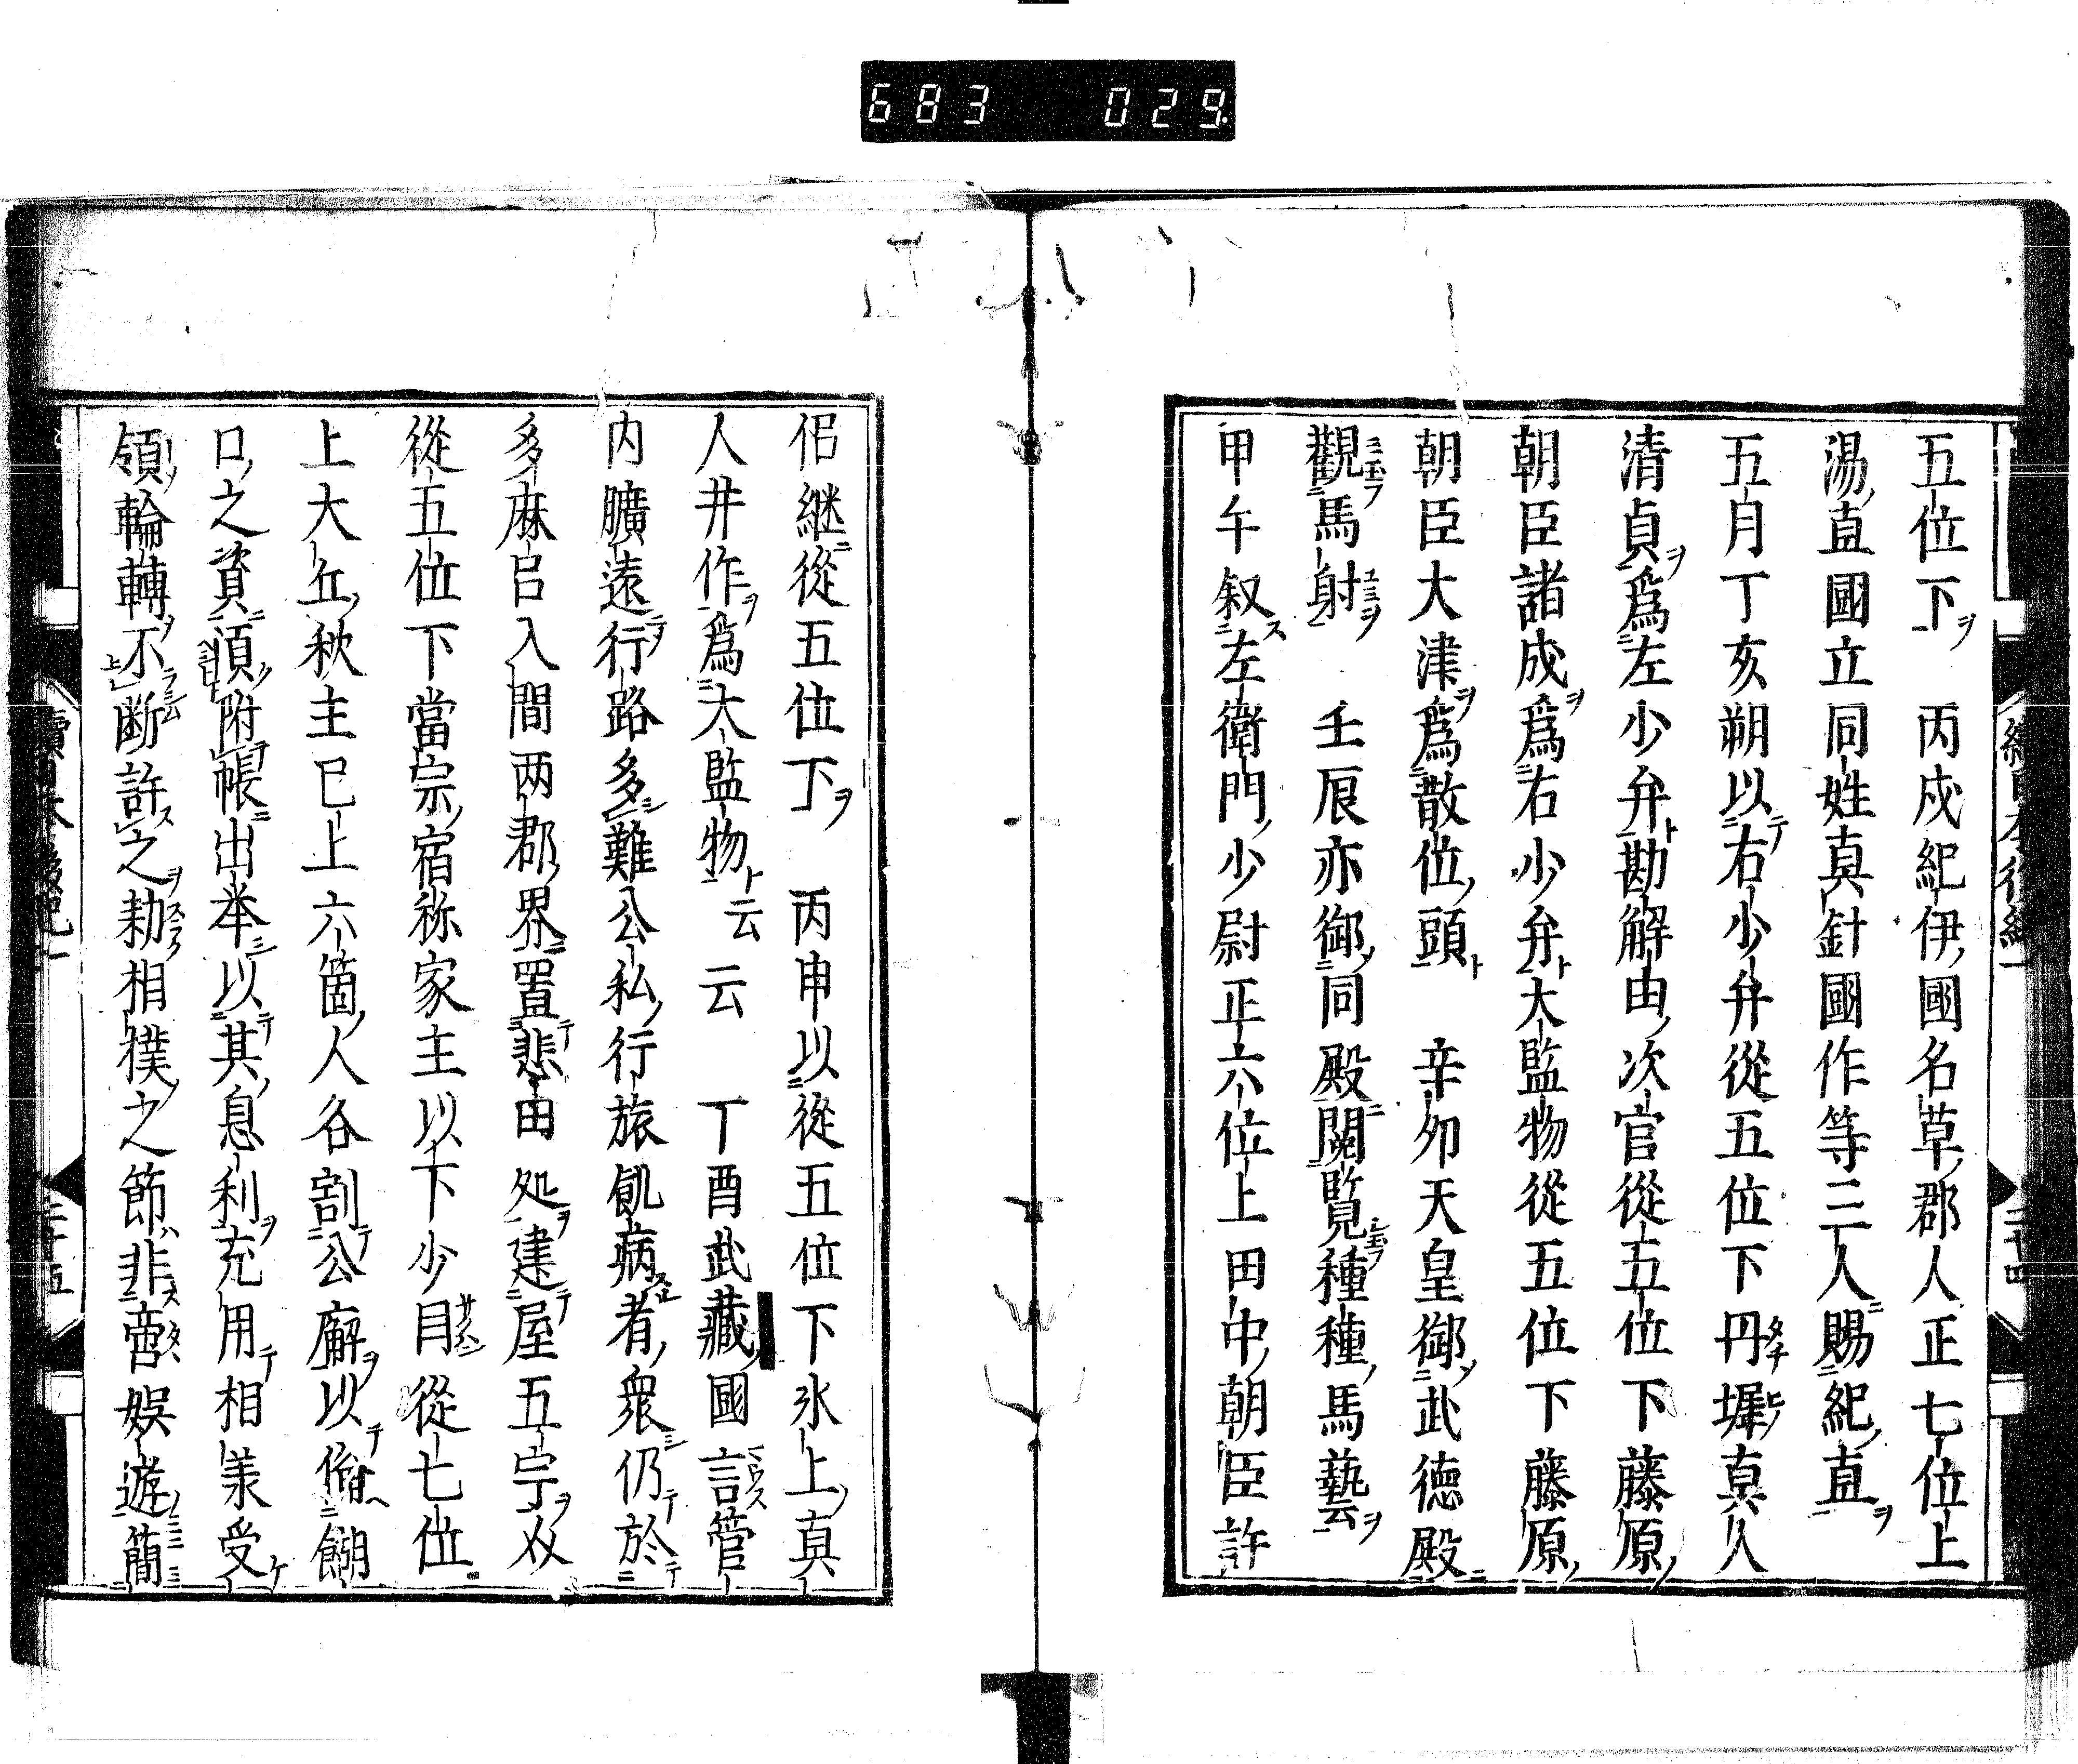 683 029
五位下 丙戌紀伊國名草郡人正七位上
湯直國立同姓真針國作等三人賜紀直
五月丁亥朔以右少弁從五位下丹墀真人
清貞爲左少弁勘解由次官從五位下藤原
朝臣諸成爲右少弁大監物從五位下藤原
朝臣大津爲散位頭 辛夘天皇御武德殿
觀馬射 壬辰亦御同殿閱覧種種馬藝
甲午叙左衛門少尉正六位上田中朝臣許
侶継從五位下 丙申以從五位下氷上真
人井作爲大監物云云 丁酉武藏國言管
内曠遠行路多難公私行旅飢病者衆仍於
多麻呂入間两郡界置悲田処建屋五宇㕛
從五位下當宗宿祢家主以下少目從七位
上大丘秋主已上六箇人各割公廨以俻餬
口之資須附帳出举以其息利充用相羕受
領輪轉不断許之勅相撲之節非啻娯遊簡
續日本後紀一
二十五